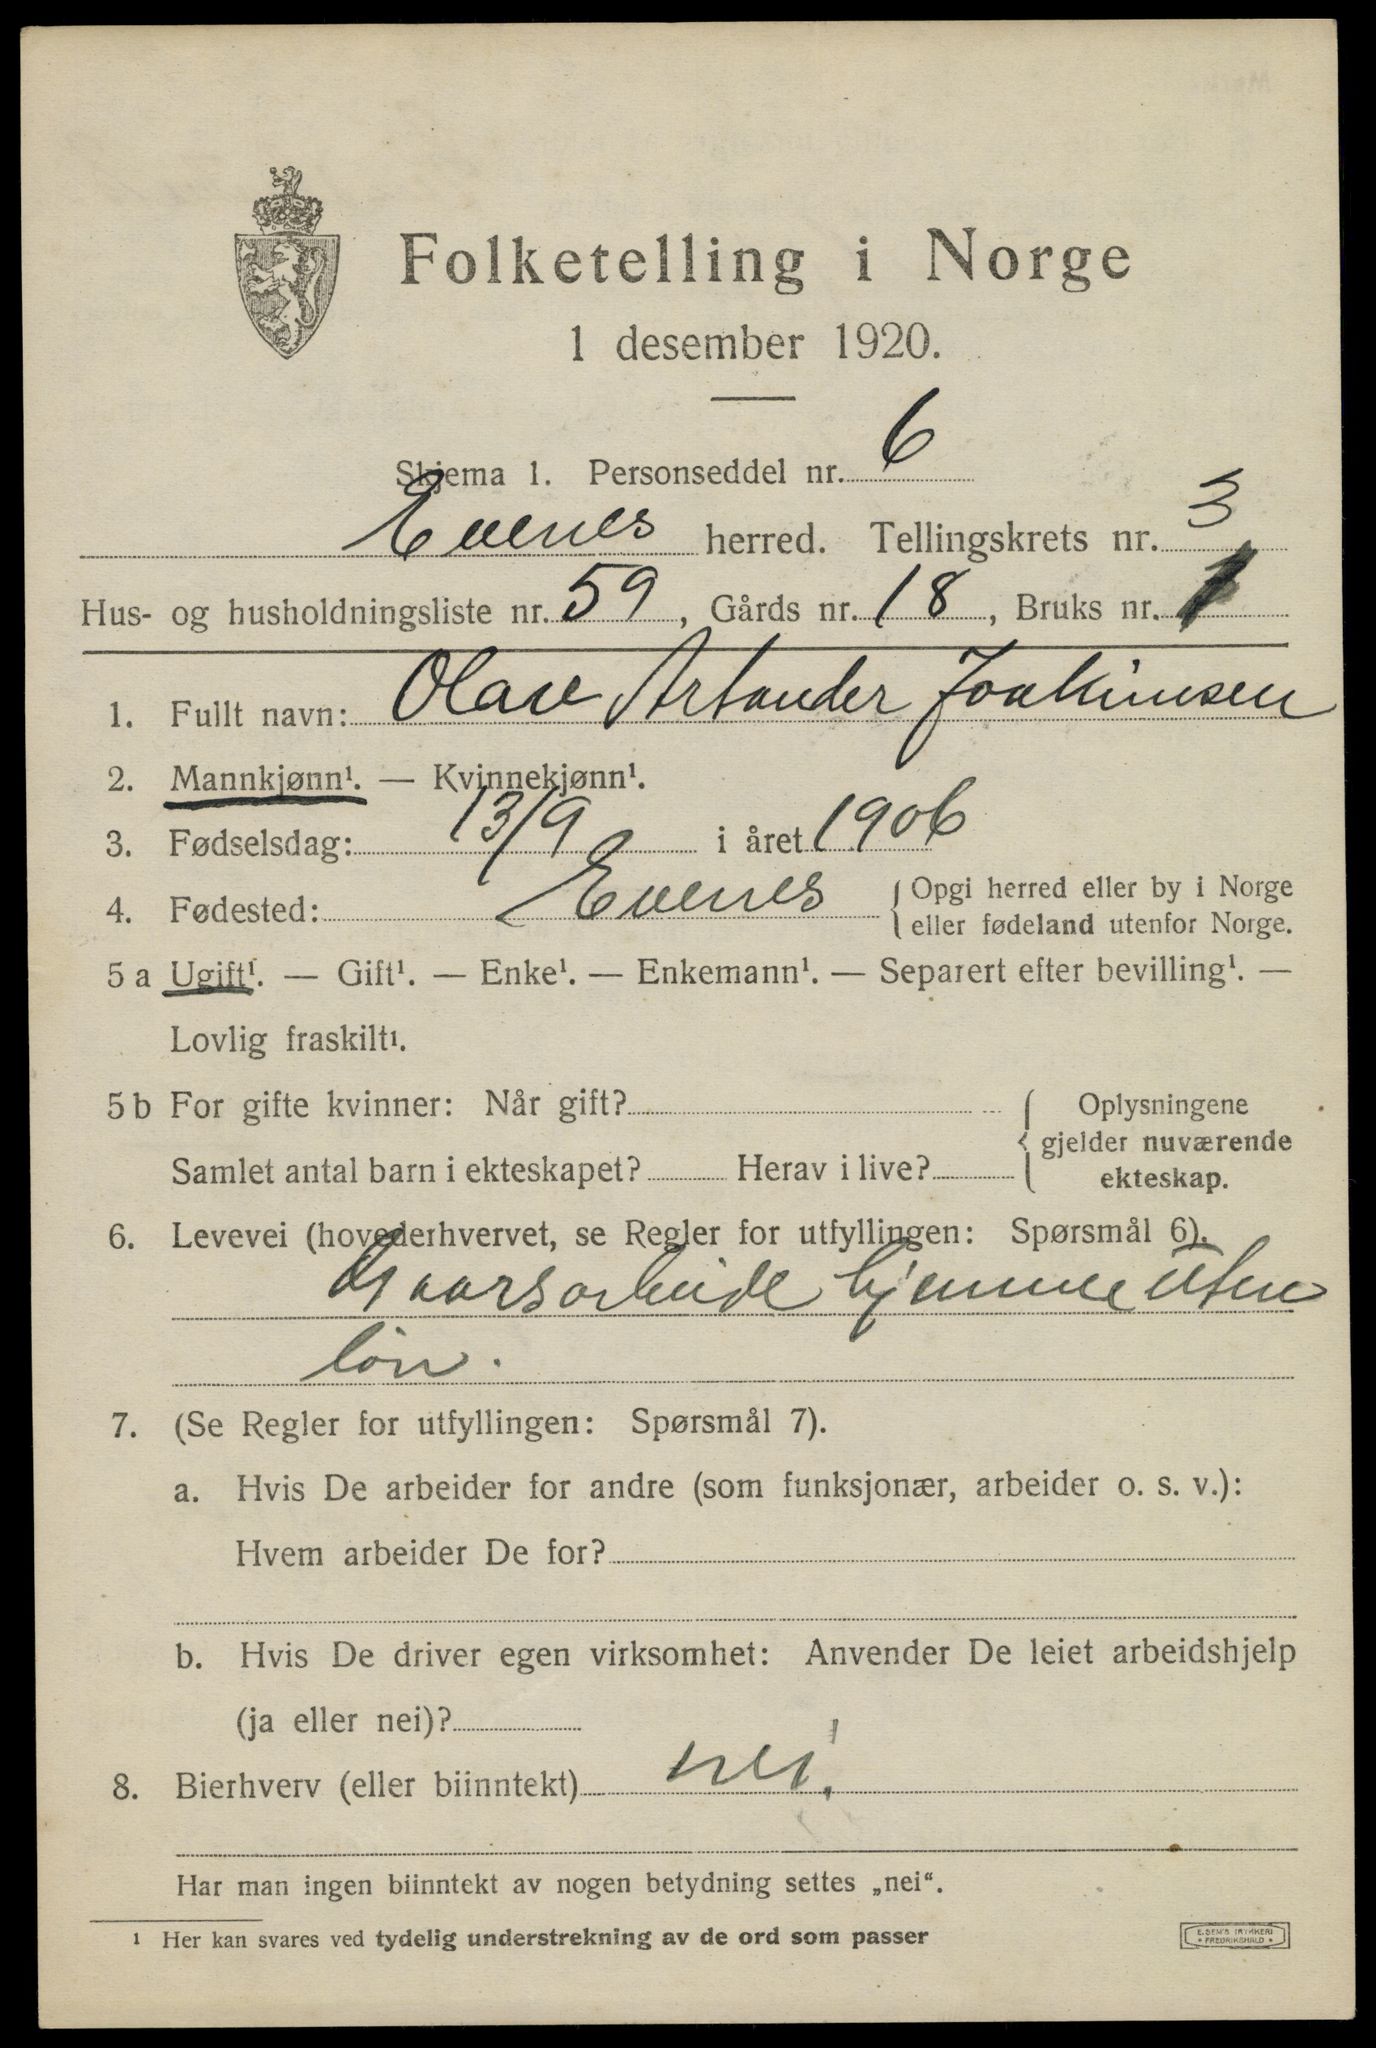 Folketelling i Norge
1 desember 1920.
Skjema 1. Personseddel nr. 6
Evenes herred. Tellingskrets nr. 3
Hus- og husholdningsliste nr. 59, Gårds nr. 18, Bruks nr. 1
1. Fullt navn: Olav Artander Joakimsen
2. Mannkjønn¹. — Kvinnekjønn¹.
3. Fødselsdag: 13/9 i året 1906
4. Fødested: Evenes { Opgi herred eller by i Norge
eller fødeland utenfor Norge.
5 a Ugift¹. — Gift¹. — Enke¹. — Enkemann¹. — Separert efter bevilling¹. —
Lovlig fraskilt¹.
5 b For gifte kvinner: Når gift? Oplysningene
gjelder nuværende
Samlet antal barn i ekteskapet? Herav i live? ekteskap.
6. Levevei (hovederhvervet, se Regler for utfyllingen: Spørsmål 6).
Gaarsarbeide hjemme uten
lön.
7. (Se Regler for utfyllingen: Spørsmål 7).
a. Hvis De arbeider for andre (som funksjonær, arbeider o. s. v.):
Hvem arbeider De for?
b. Hvis De driver egen virksomhet: Anvender De leiet arbeidshjelp
(ja eller nei)?
8. Bierhverv (eller biinntekt) nei.
Har man ingen biinntekt av nogen betydning settes „nei“.
¹ Her kan svares ved tydelig understrekning av de ord som passer
E. SEM'S TRYKKERI
• FREDRIKSHALD •